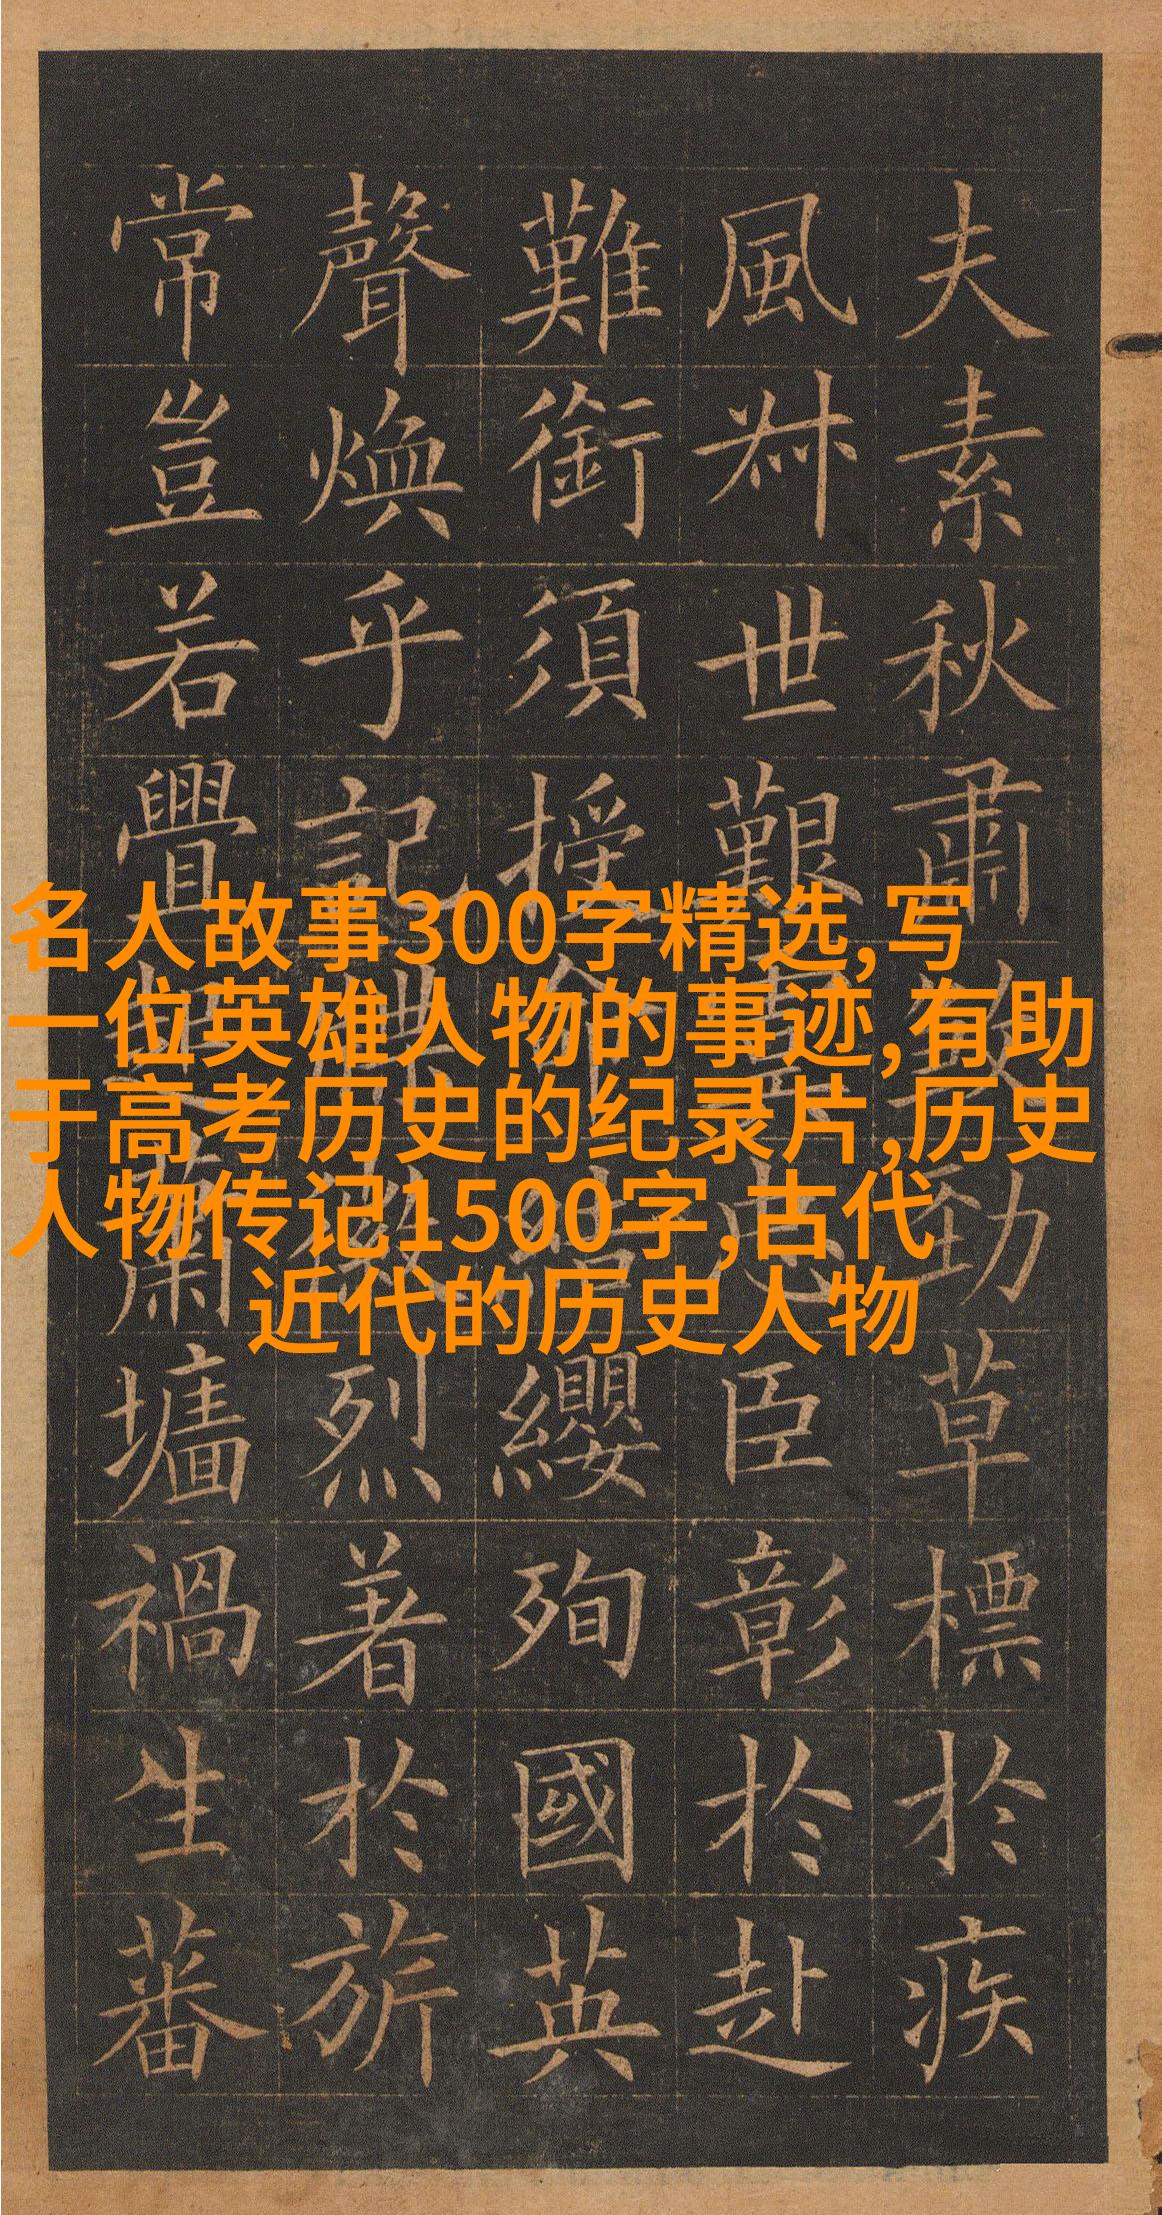 夫素秋肅煞勁草標於疾
風叔世艱虞忠臣彰於赴
難銜須授命結纓殉國英
聲煥乎記牒徽烈著於旂
常豈若釁起蕭墻禍生蕃
名人故事300字精选,写
一位英雄人物的事迹,有助
于高考历史的纪录片,历史
人物传记1500字,古代
近代的历史人物